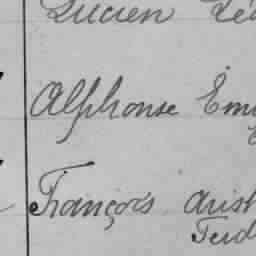 Lucien Lé
Alphonse Em
François Arist
Ferd